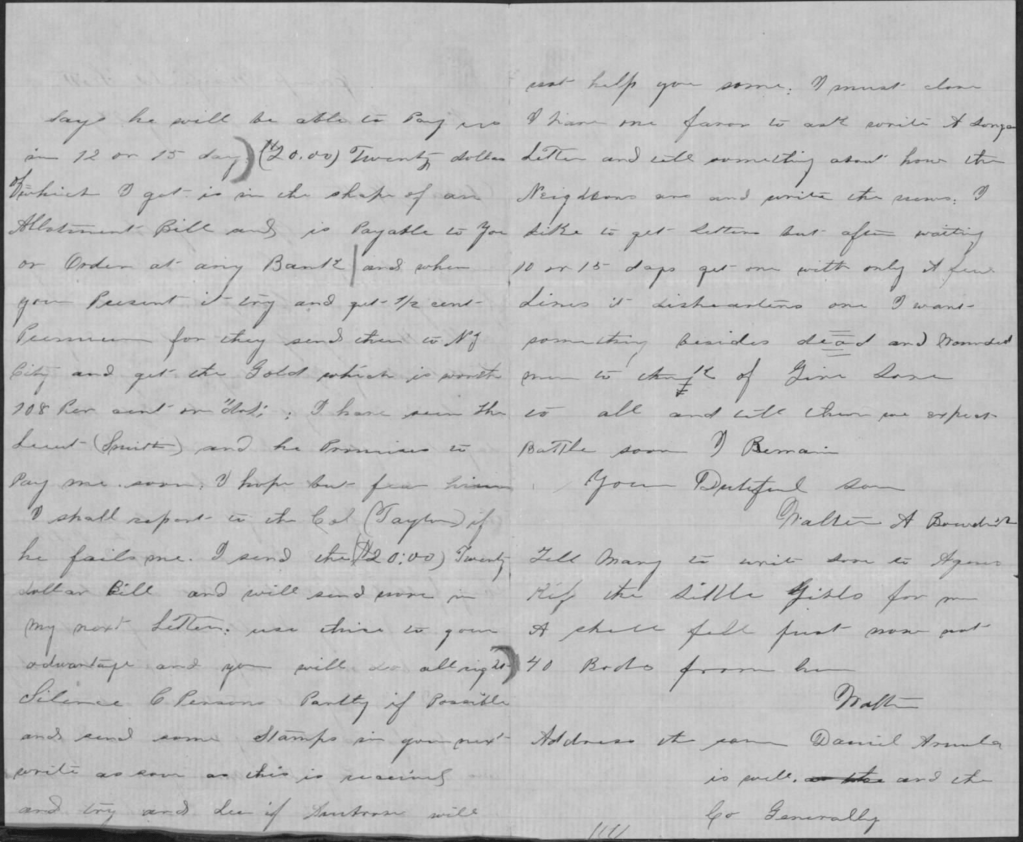 says he will be able to Pay us
in 12 or 15 day) ($20.00) Twenty dollar
of which I get is in the shape of an
Allotment Bill and is Payable to You
or Order at any Bank | and when
you Present it try and get 1/2 cent
Premium for they send them to NY
City and get the Gold which is worth
108 Per cent on : I have seen the
Lieut (Smith) and he Promises to
Pay me soon, I hope but fear him
I shall report to the Col (Taylor) if
he fails me. I send the ($20:00) Twenty
dollar Bill and will send more in
my next Letter: use this to your
advantage and you will do all right)
Silence C Persons Partly if Possible
and send some Stamps in your next
write as soon as this is received
and try and see if will
not help you some: I must close
I have one favor to ask write A longer
Letter and tell something about how the
Neighbors are and write the news. I
Like to get letters but after waiting
10 or 15 days get one with only A few
Lines it disheartens one I want
something besides dead and Wounded
men to think of Give Love
to all and tell them we expect
Battle soon I Remain
Your Dutiful son
Walter A
Tell Mary to write love to Agnes
Kiss the Little Girls for me
A shell fell just now not
40 Rods from here
Walter
Address the same Daniel
is well. and the
Co Generally